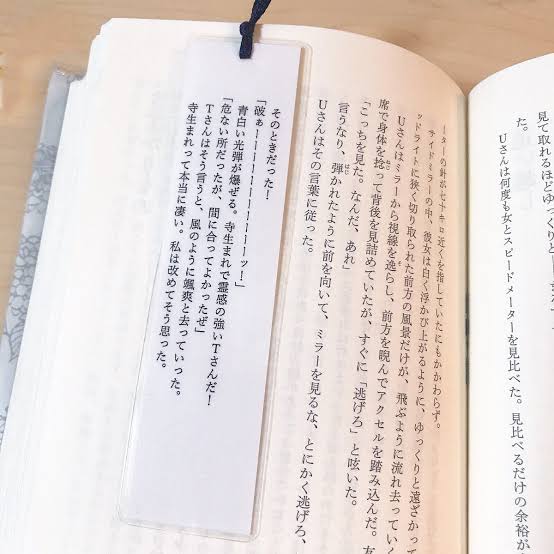 見て取れるほどゆっくりと
た。
Uさんは何度も女とスピードメーターを見比べた。見比べるだけの余裕が
ーターの針が七十キロ近くを指していたにもかかわらず。
サイドミラーの中、彼女は白く浮かび上がるように、ゆっくりと遠ざかって
ッドライトに狭く切り取られた前方の風景だけが、飛ぶように流れ去っていく
Uさんはミラーから視線を逸らし、前方を睨んでアクセルを踏み込んだ。友
席で身体を捻って背後を見詰めていたが、すぐに「逃げろ」と呟いた。
「こっちを見た。なんだ、あれ」
言うなり、弾かれたように前を向いて、ミラーを見るな、とにかく逃げろ、
Uさんはその言葉に従った。
そのときだった！
「破ぁーーーーーーーーーーーッ！」
青白い光弾が爆ぜる。寺生まれで霊感の強いTさんだ！
「危ない所だったが、間に合ってよかったぜ」
Tさんはそう言うと、風のように颯爽と去っていった。
寺生まれって本当に凄い。私は改めてそう思った。